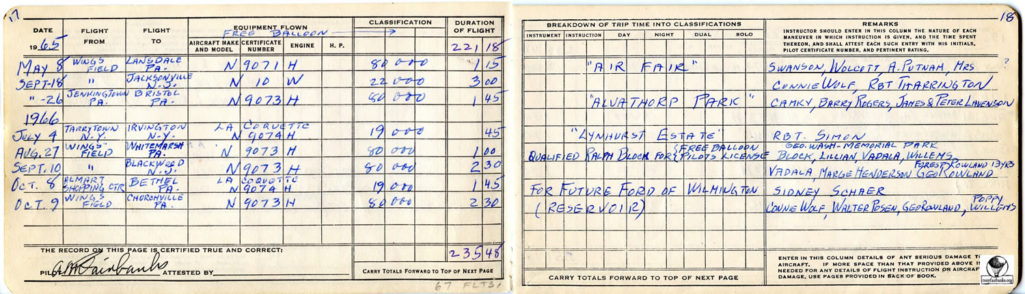 17
DATE
1965
FLIGHT FROM
FLIGHT TO
EQUIPMENT FLOWN
FREE BALLOON
AIRCRAFT MAKE AND MODEL
CERTIFICATE NUMBER
ENGINE
H. P.
CLASSIFICATION
DURATION OF FLIGHT
221 18
MAY 8 WINGS FIELD LANSDALE PA. N 9071 H 80000 1 15
SEPT-18 " JACKSONVILLE N.J. N 10 W 22000 3 00
" -26 JENKINGTOWN PA. BRISTOL PA. N 9073 H 80000 1 45
1966
JULY 4 TARRYTOWN N.Y. IRVINGTON N.Y. LA COQUETTE N 9074 H 19000 45
AUG. 27 WINGS FIELD WHITEMARSH PA. N 9073 H 80000 1 00
SEPT. 10 " BLACKWOOD N.J. N 9073 H 80000 2 30
OCT. 8 ELMART SHOPPING CTR BETHEL PA. LA COQUETTE N 9074 H 19000 1 45
OCT. 9 WINGS FIELD CHURCHVILLE PA. N 9073 H 80000 2 30
THE RECORD ON THIS PAGE IS CERTIFIED TRUE AND CORRECT:
235 48
PILOT A.M. Fairbanks ATTESTED BY
CARRY TOTALS FORWARD TO TOP OF NEXT PAGE
67 FLTS.
18
BREAKDOWN OF TRIP TIME INTO CLASSIFICATIONS
INSTRUMENT INSTRUCTION DAY NIGHT DUAL SOLO
REMARKS
INSTRUCTOR SHOULD ENTER IN THIS COLUMN THE NATURE OF EACH
MANEUVER IN WHICH INSTRUCTION IS GIVEN, AND THE TIME SPENT
THEREON, AND SHALL ATTEST EACH SUCH ENTRY WITH HIS INITIALS,
PILOT CERTIFICATE NUMBER, AND PERTINENT RATING.
"AIR FAIR" SWANSON, WOLCOTT A. PUTNAM, MRS ?
CONNIE WOLF, RBT THARRINGTON
"ALVATHORP PARK" CAMKY, BARRY ROGERS, JAMES & PETER LAVENSON
"LYNHURST ESTATE" RBT. SIMON
GEO. WASH-MEMORIAL PARK
QUALIFIED RALPH BLOCK FOR FREE BALLOON PILOTS LICENSE BLOCK, LILLIAN, VADALA, WILLEMS
FOREST ROWLAND 13 YRS
VADALA, MARGE HENDERSON GEO ROWLAND
FOR FUTURE FORD OF WILMINGTON SIDNEY SCHAER
(RESERVOIR) CONNIE WOLF, WALTER POSEN, GEO ROWLAND, POPPY WILLEMS
ENTER IN THIS COLUMN DETAILS OF ANY SERIOUS DAMAGE TO
AIRCRAFT. IF MORE SPACE THAN THAT PROVIDED ABOVE IS
NEEDED FOR ANY DETAILS OF FLIGHT INSTRUCTION OR AIRCRAFT
DAMAGE, USE PAGES PROVIDED IN BACK OF BOOK.
CARRY TOTALS FORWARD TO TOP OF NEXT PAGE